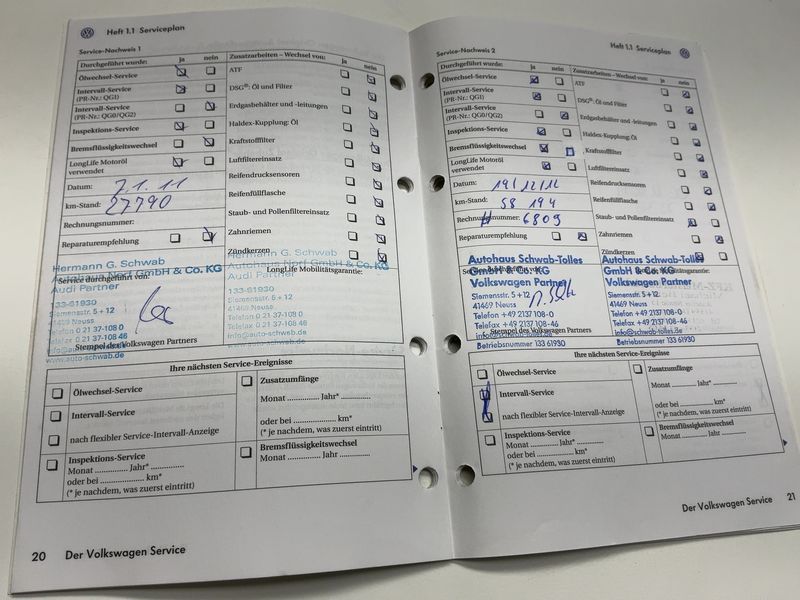 Heft 1.1 Serviceplan
Service-Nachweis 1
Durchgeführt wurde: ja nein
Zusatzarbeiten – Wechsel von: ja nein
Ölwechsel-Service
ATF
Intervall-Service
(PR-Nr.: QG1)
DSG®: Öl und Filter
Intervall-Service
(PR-Nr.: QG0/QG2)
Erdgasbehälter und -leitungen
Inspektions-Service
Haldex-Kupplung: Öl
Bremsflüssigkeitswechsel
Kraftstofffilter
LongLife Motoröl
verwendet
Luftfiltereinsatz
Datum: 7.1.11
Reifendrucksensoren
km-Stand: 27790
Reifenfüllflasche
Rechnungsnummer:
Staub- und Pollenfiltereinsatz
Reparaturempfehlung
Zahnriemen
Zündkerzen
Service durchgeführt von:
LongLife Mobilitätsgarantie:
Hermann G. Schwab
Autohaus Norf GmbH & Co. KG
Audi Partner
133-61930
Siemensstr. 5 + 12
41469 Neuss
Telefon 0 21 37-108 0
Telefax 0 21 37-108 46
info@auto-schwab.de
www.autohaus-schwab.de
Hermann G. Schwab
Autohaus Norf GmbH & Co. KG
Audi Partner
133-61930
Siemensstr. 5 + 12
41469 Neuss
Telefon 0 21 37-108 0
Telefax 0 21 37-108 46
info@auto-schwab.de
www.auto-schwab.de
Stempel des Volkswagen Partners
Ihre nächsten Service-Ereignisse
Ölwechsel-Service
Zusatzumfänge
Monat .............. Jahr* ..............
Intervall-Service
oder bei .................... km*
nach flexibler Service-Intervall-Anzeige
(* je nachdem, was zuerst eintritt)
Inspektions-Service
Monat .............. Jahr* ..............
oder bei .................... km*
(* je nachdem, was zuerst eintritt)
Bremsflüssigkeitswechsel
Monat .............. Jahr ..............
20 Der Volkswagen Service
Heft 1.1 Serviceplan
Service-Nachweis 2
Durchgeführt wurde: ja nein
Zusatzarbeiten – Wechsel von: ja nein
Ölwechsel-Service
ATF
Intervall-Service
(PR-Nr.: QG1)
DSG®: Öl und Filter
Intervall-Service
(PR-Nr.: QG0/QG2)
Erdgasbehälter und -leitungen
Inspektions-Service
Haldex-Kupplung: Öl
Bremsflüssigkeitswechsel
Kraftstofffilter
LongLife Motoröl
verwendet
Luftfiltereinsatz
Datum: 19/12/12
Reifendrucksensoren
km-Stand: 58 194
Reifenfüllflasche
Rechnungsnummer: 6809
Staub- und Pollenfiltereinsatz
Reparaturempfehlung
Zahnriemen
Zündkerzen
Autohaus Schwab-Tolles
GmbH & Co. KG
Volkswagen Partner
Siemensstr. 5 + 12
41469 Neuss
Telefon +49 2137 108-0
Telefax +49 2137 108-46
info@schwab-tolles.de
Betriebsnummer 133 61930
Autohaus Schwab-Tolles
GmbH & Co. KG
Volkswagen Partner
Siemensstr. 5 + 12
41469 Neuss
Telefon +49 2137 108-0
Telefax +49 2137 108-46
info@schwab-tolles.de
Betriebsnummer 133 61930
Stempel des Volkswagen Partners
Ihre nächsten Service-Ereignisse
Ölwechsel-Service
Zusatzumfänge
Monat .............. Jahr* ..............
Intervall-Service
oder bei .................... km*
nach flexibler Service-Intervall-Anzeige
(* je nachdem, was zuerst eintritt)
Inspektions-Service
Monat .............. Jahr* ..............
oder bei .................... km*
(* je nachdem, was zuerst eintritt)
Bremsflüssigkeitswechsel
Monat .............. Jahr ..............
Der Volkswagen Service 21